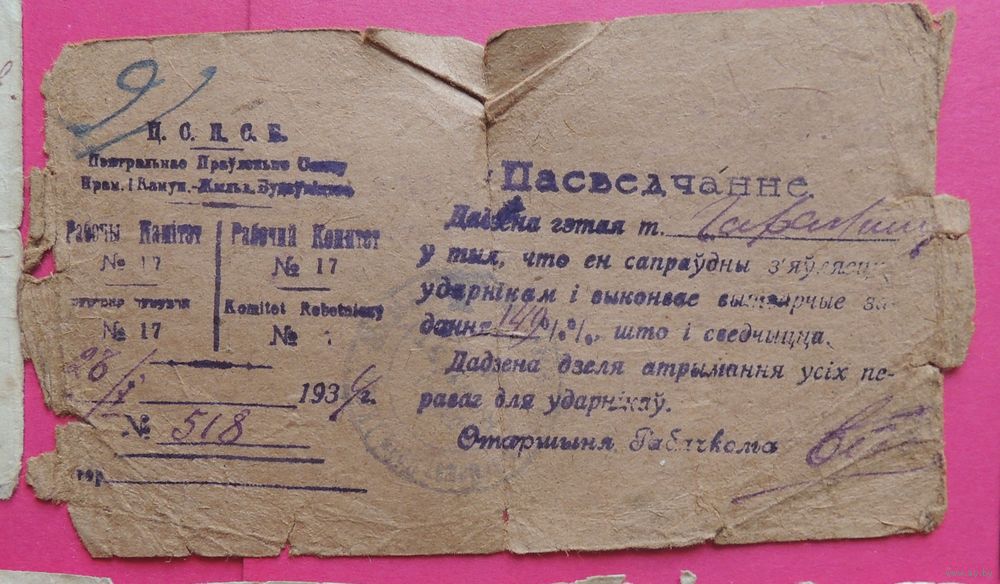 Ц. С. П. С. Б.
Центральнае Праўленьне Саюзу
Прам. і Камун.-Жыльл. Будаўніцтва
Рабочы Камітэт
№ 17
Рабочий Комитет
№ 17
№ 17
Komitet Robotniczy
№
28/
1934 г.
№ 518
гор.
Пасведчанне
Дадзена гэтая т.
у тым, что ен сапраўдны з'яўляецц
ударнікам і выконвае вытварчые за-
данне 149 %%, што і сведчыцца.
Дадзена дзеля атрымання усіх пе-
раваг для ударнікаў.
Старшыня Рабочкома